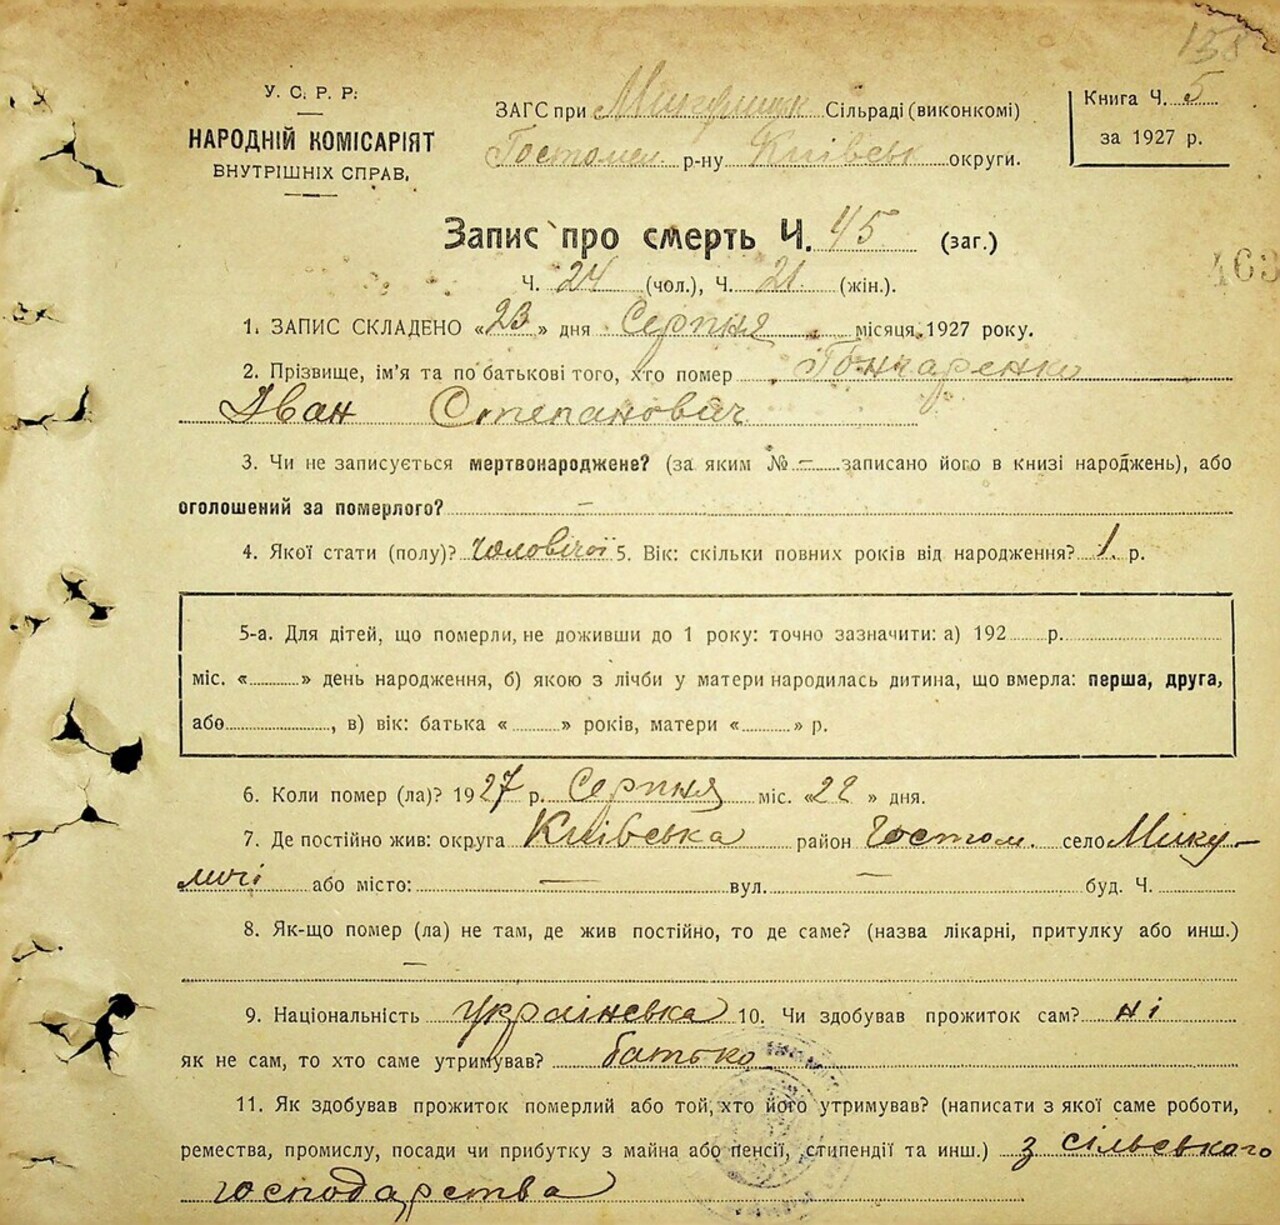 138
У. С. Р. Р.
НАРОДНІЙ КОМІСАРІЯТ
ВНУТРІШНІХ СПРАВ.
ЗАГС при Сільраді (виконкомі)
Гостомел. р-ну Київськ округи.
Книга Ч. 5
за 1927 р.
Запис про смерть Ч. 45 (заг.)
463
Ч. 24 (чол.), Ч. 21. (жін.).
1. ЗАПИС СКЛАДЕНО «23» дня Серпня місяця 1927 року.
2. Прізвище, ім'я та по батькові того, хто помер Гончаренко
Іван Степанович
3. Чи не записується мертвонароджене? (за яким № — записано його в книзі народжень), або
оголошений за померлого? —
4. Якої стати (полу)? чоловічої 5. Вік: скільки повних років від народження? 1. р.
5-а. Для дітей, що померли, не доживши до 1 року: точно зазначити: а) 192 р.
міс. « » день народження, б) якою з лічби у матери народилась дитина, що вмерла: перша, друга,
або , в) вік: батька « » років, матери « » р.
6. Коли помер (ла)? 1927 р. Серпня міс. «22» дня.
7. Де постійно жив: округа Київська район Гостом. село Мику-
личі або місто: — вул. — буд. Ч.
8. Як-що помер (ла) не там, де жив постійно, то де саме? (назва лікарні, притулку або инш.)
—
9. Національність українська 10. Чи здобував прожиток сам? ні
як не сам, то хто саме утримував? батько
11. Як здобував прожиток померлий або той, хто його утримував? (написати з якої саме роботи,
ремества, промислу, посади чи прибутку з майна або пенсії, стипендії та инш.) з сільського
господарства